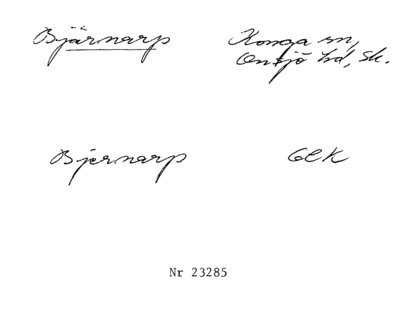 Bjärnarp
Konga sn,
Onsjö hd, Sk.
Bjernarp
GEK
Nr 23285